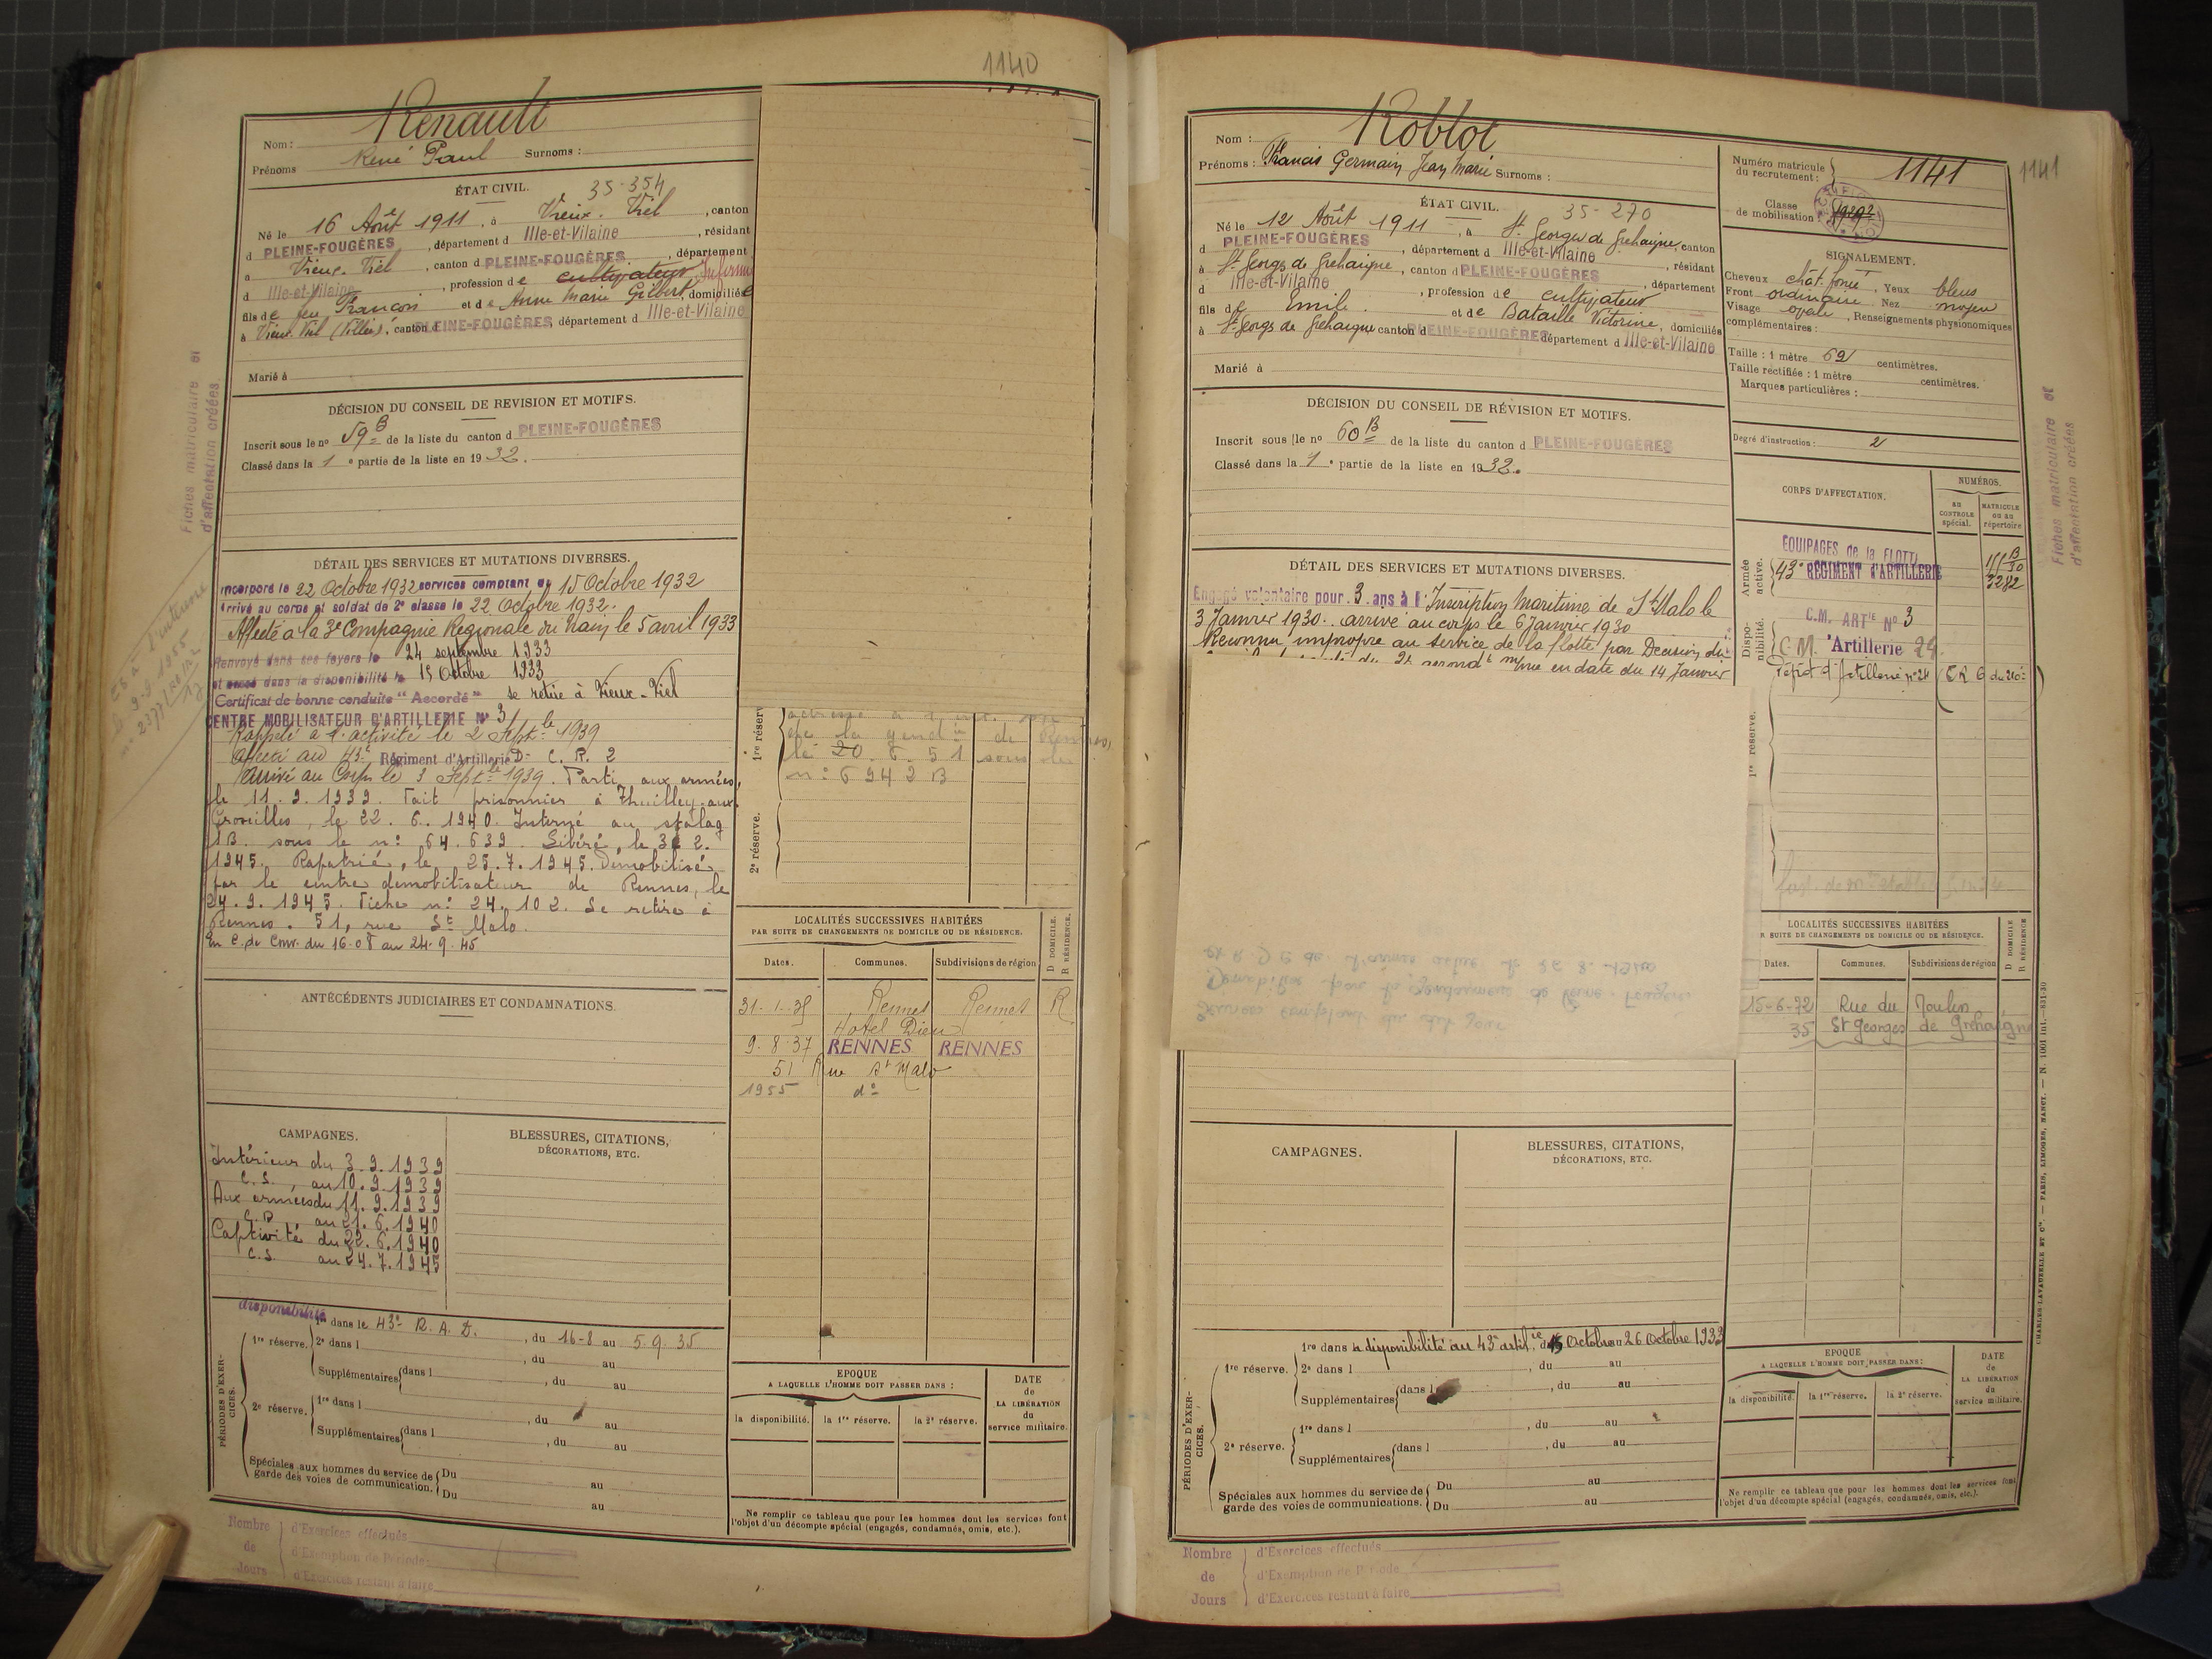 1140
Nom : Renault
Prénoms René Paul Surnoms :
ÉTAT CIVIL.
35-354
Né le 16 Août 1911, à Vieux-Viel, canton
d PLEINE-FOUGÈRES, département d Ille-et-Vilaine, résidant
à Vieux-Viel, canton d PLEINE-FOUGÈRES, département
d Ille-et-Vilaine, profession de cultivateur
fils de feu François et de Anne Marie Gilbert, domiciliés
à Vieux-Viel, canton d PLEINE-FOUGÈRES, département d Ille-et-Vilaine
Marié à
DÉCISION DU CONSEIL DE REVISION ET MOTIFS.
Inscrit sous le no 59 B de la liste du canton d PLEINE-FOUGÈRES
Classé dans la 1e partie de la liste en 1932.
DÉTAIL DES SERVICES ET MUTATIONS DIVERSES.
Incorporé le 22 Octobre 1932 services comptant du 15 Octobre 1932
Arrivé au corps et soldat de 2e classe le 22 Octobre 1932.
Affecté à la 3e Compagnie Régionale du Train le 5 avril 1933
Renvoyé dans ses foyers le 24 septembre 1933
et passé dans la disponibilité le 15 Octobre 1933
Certificat de bonne conduite "Accordé" se retire à Vieux-Viel
CENTRE MOBILISATEUR D'ARTILLERIE No 3
Rappelé à l'activité le 2 Septbre 1939
Affecté au 43e Régiment d'Artillerie D- C. R. 2
Arrivé au Corps le 3 Septbre 1939. Parti aux armées,
le 11.9.1939. Fait prisonnier à Thuilley-aux
Groseilles, le 22.6.1940. Interné au stalag
sous le n: 64.639. Libéré, le
1945. Rapatrié, le 25.7.1945. Démobilisé
par le centre démobilisateur de Rennes, le
24.9.1945. Fiche n: 24.102. Se retire à
Rennes. 51, rue St Malo.
En C. de Conv. du 16.08 au 24.9.45
ANTÉCÉDENTS JUDICIAIRES ET CONDAMNATIONS.
CAMPAGNES.
Intérieur du 3.9.1939
C.S., au 10.9.1939
Aux armées du 11.9.1939
C.D. au 21.6.1940
Captivité du 22.6.1940
C.S. au 24.7.1945
BLESSURES, CITATIONS,
DÉCORATIONS, ETC.
disponibilité
PÉRIODES D'EXERCICES.
1re réserve.
1re dans le 43e R. A. D., du 16-8 au 5.9.35
2e dans l , du au
Supplémentaires dans l , du au
2e réserve.
1re dans l , du au
Supplémentaires dans l , du au
Spéciales aux hommes du service de
garde des voies de communication.
Du au
Du au
Nombre de Jours
d'Exercices effectués
d'Exemption de Période
d'Exercices restant à faire
Fiches matriculaire et
d'affectation créées
1re réserve
de la gend de Rennes,
le 20.6.51 sous le
n: 6942 B
2e réserve.
LOCALITÉS SUCCESSIVES HABITÉES
PAR SUITE DE CHANGEMENTS DE DOMICILE OU DE RÉSIDENCE.
D DOMICILE.
R RÉSIDENCE.
Dates. Communes. Subdivisions de région
Rennes Rennes R
Hotel Dieu
9.8.37 RENNES RENNES
51 Rue St Malo
1955 do
EPOQUE
A LAQUELLE L'HOMME DOIT PASSER DANS :
la disponibilité. la 1re réserve. la 2e réserve.
DATE
de
LA LIBÉRATION
du
service militaire.
Ne remplir ce tableau que pour les hommes dont les services font
l'objet d'un décompte spécial (engagés, condamnés, omis, etc.).
Nom : Roblot
Prénoms : Francis Germain Jean Marie Surnoms :
ÉTAT CIVIL.
35-270
Né le 12 Août 1911, à St Georges de Gréhaigne, canton
d PLEINE-FOUGÈRES, département d Ille-et-Vilaine, résidant
à St Georges de Gréhaigne, canton d PLEINE-FOUGÈRES, département
d Ille-et-Vilaine, profession de cultivateur
fils de Emile et de Bataille Victorine, domiciliés
à St Georges de Gréhaigne canton d PLEINE-FOUGÈRES département d Ille-et-Vilaine
Marié à
DÉCISION DU CONSEIL DE RÉVISION ET MOTIFS.
Inscrit sous le no 60 B de la liste du canton d PLEINE-FOUGÈRES
Classé dans la 1e partie de la liste en 1932.
DÉTAIL DES SERVICES ET MUTATIONS DIVERSES.
Engagé volontaire pour 3 ans à l'Inscription Maritime de St Malo le
3 Janvier 1930. arrivé au corps le 6 Janvier 1930
Reconnu impropre au service de la flotte par Décision du
en date du 14 Janvier
CAMPAGNES.
BLESSURES, CITATIONS,
DÉCORATIONS, ETC.
PÉRIODES D'EXERCICES.
1re réserve.
1re dans la disponibilité au 43e artie, du 15 Octobre au 26 Octobre 1933
2e dans l , du au
Supplémentaires dans l , du au
2e réserve.
1re dans l , du au
Supplémentaires dans l , du au
Spéciales aux hommes du service de
garde des voies de communications.
Du au
Du au
Nombre de Jours
d'Exercices effectués
d'Exemption de Période
d'Exercices restant à faire
Numéro matricule
du recrutement : 1141
1141
Classe
de mobilisation :
SIGNALEMENT.
Cheveux chât. foncé, Yeux bleus
Front ordinaire Nez moyen
Visage ovale, Renseignements physionomiques
complémentaires :
Taille : 1 mètre 62 centimètres.
Taille rectifiée : 1 mètre centimètres.
Marques particulières :
Degré d'instruction : 2
CORPS D'AFFECTATION.
NUMÉROS.
AU CONTROLE spécial.
MATRICULE ou au répertoire
Armée active.
EQUIPAGES de la FLOTTE
43e RÉGIMENT D'ARTILLERIE 3282
Disponibilité.
C.M. ARTIE No 3
C.M. d'Artillerie 24.
Dépôt d'Artillerie no 24
1re réserve.
LOCALITÉS SUCCESSIVES HABITÉES
R SUITE DE CHANGEMENTS DE DOMICILE OU DE RÉSIDENCE.
D DOMICILE
R RÉSIDENCE
Dates. Communes. Subdivisions de région
15-6-72 Rue du Moulin
35 St Georges de Gréhaigne
EPOQUE
A LAQUELLE L'HOMME DOIT PASSER DANS :
la disponibilité. la 1re réserve. la 2e réserve.
DATE
de
LA LIBÉRATION
du
service militaire.
Ne remplir ce tableau que pour les hommes dont les services font
l'objet d'un décompte spécial (engagés, condamnés, omis, etc.).
Fiches matriculaire et
d'affectation créées
CHARLES-LAVAUZELLE ET Cie. — PARIS, LIMOGES, NANCY. — N. 1001 int.—831-30